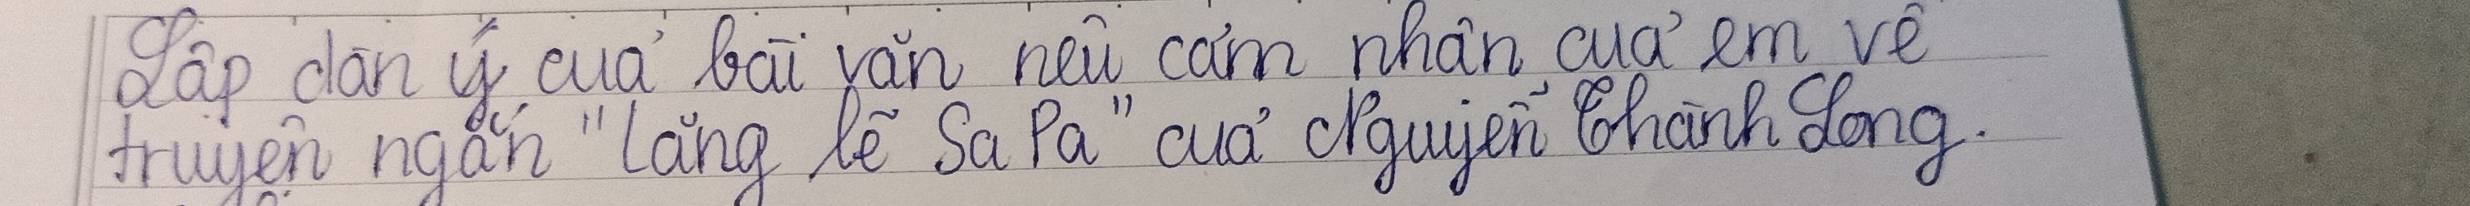 Lập dàn ý của bài văn nêu cảm nhận của em về
truyện ngắn "Lặng lẽ Sa Pa" của Nguyễn Thành Long.